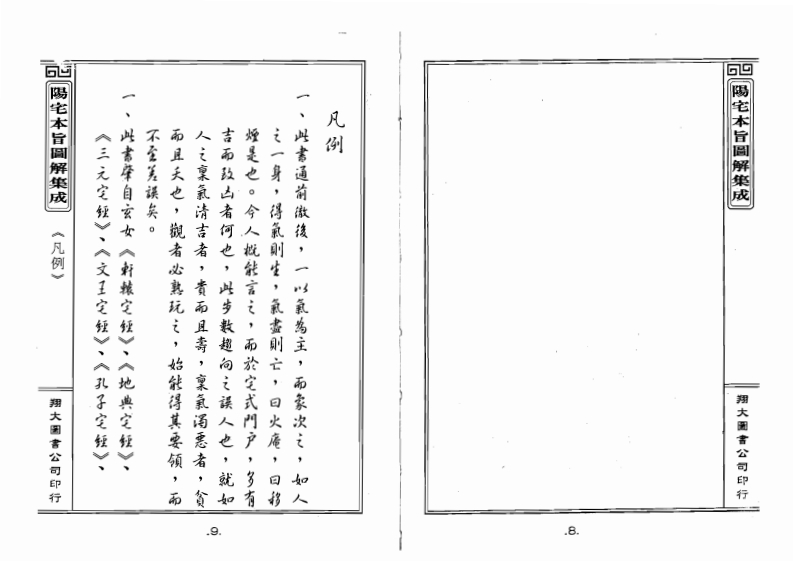 陽宅本旨圖解集成
翔大圖書公司印行
.8.
凡例
一、此書通前徹後，一以氣為主，而象次之，如人
之一身，得氣則生，氣盡則亡，曰火庵，曰移
煙是也。今人概能言之，而於宅式門戶，多有
吉而致凶者何也，此步數趨向之誤人也，就如
人之稟氣清吉者，貴而且壽，稟氣濁惡者，貧
而且夭也，觀者必熟玩之，始能得其要領，而
不至差誤矣。
一、此書肇自玄女《軒轅宅經》、《地典宅經》、
《三元宅經》、《文王宅經》、《孔子宅經》、
陽宅本旨圖解集成
《凡例》
翔大圖書公司印行
.9.